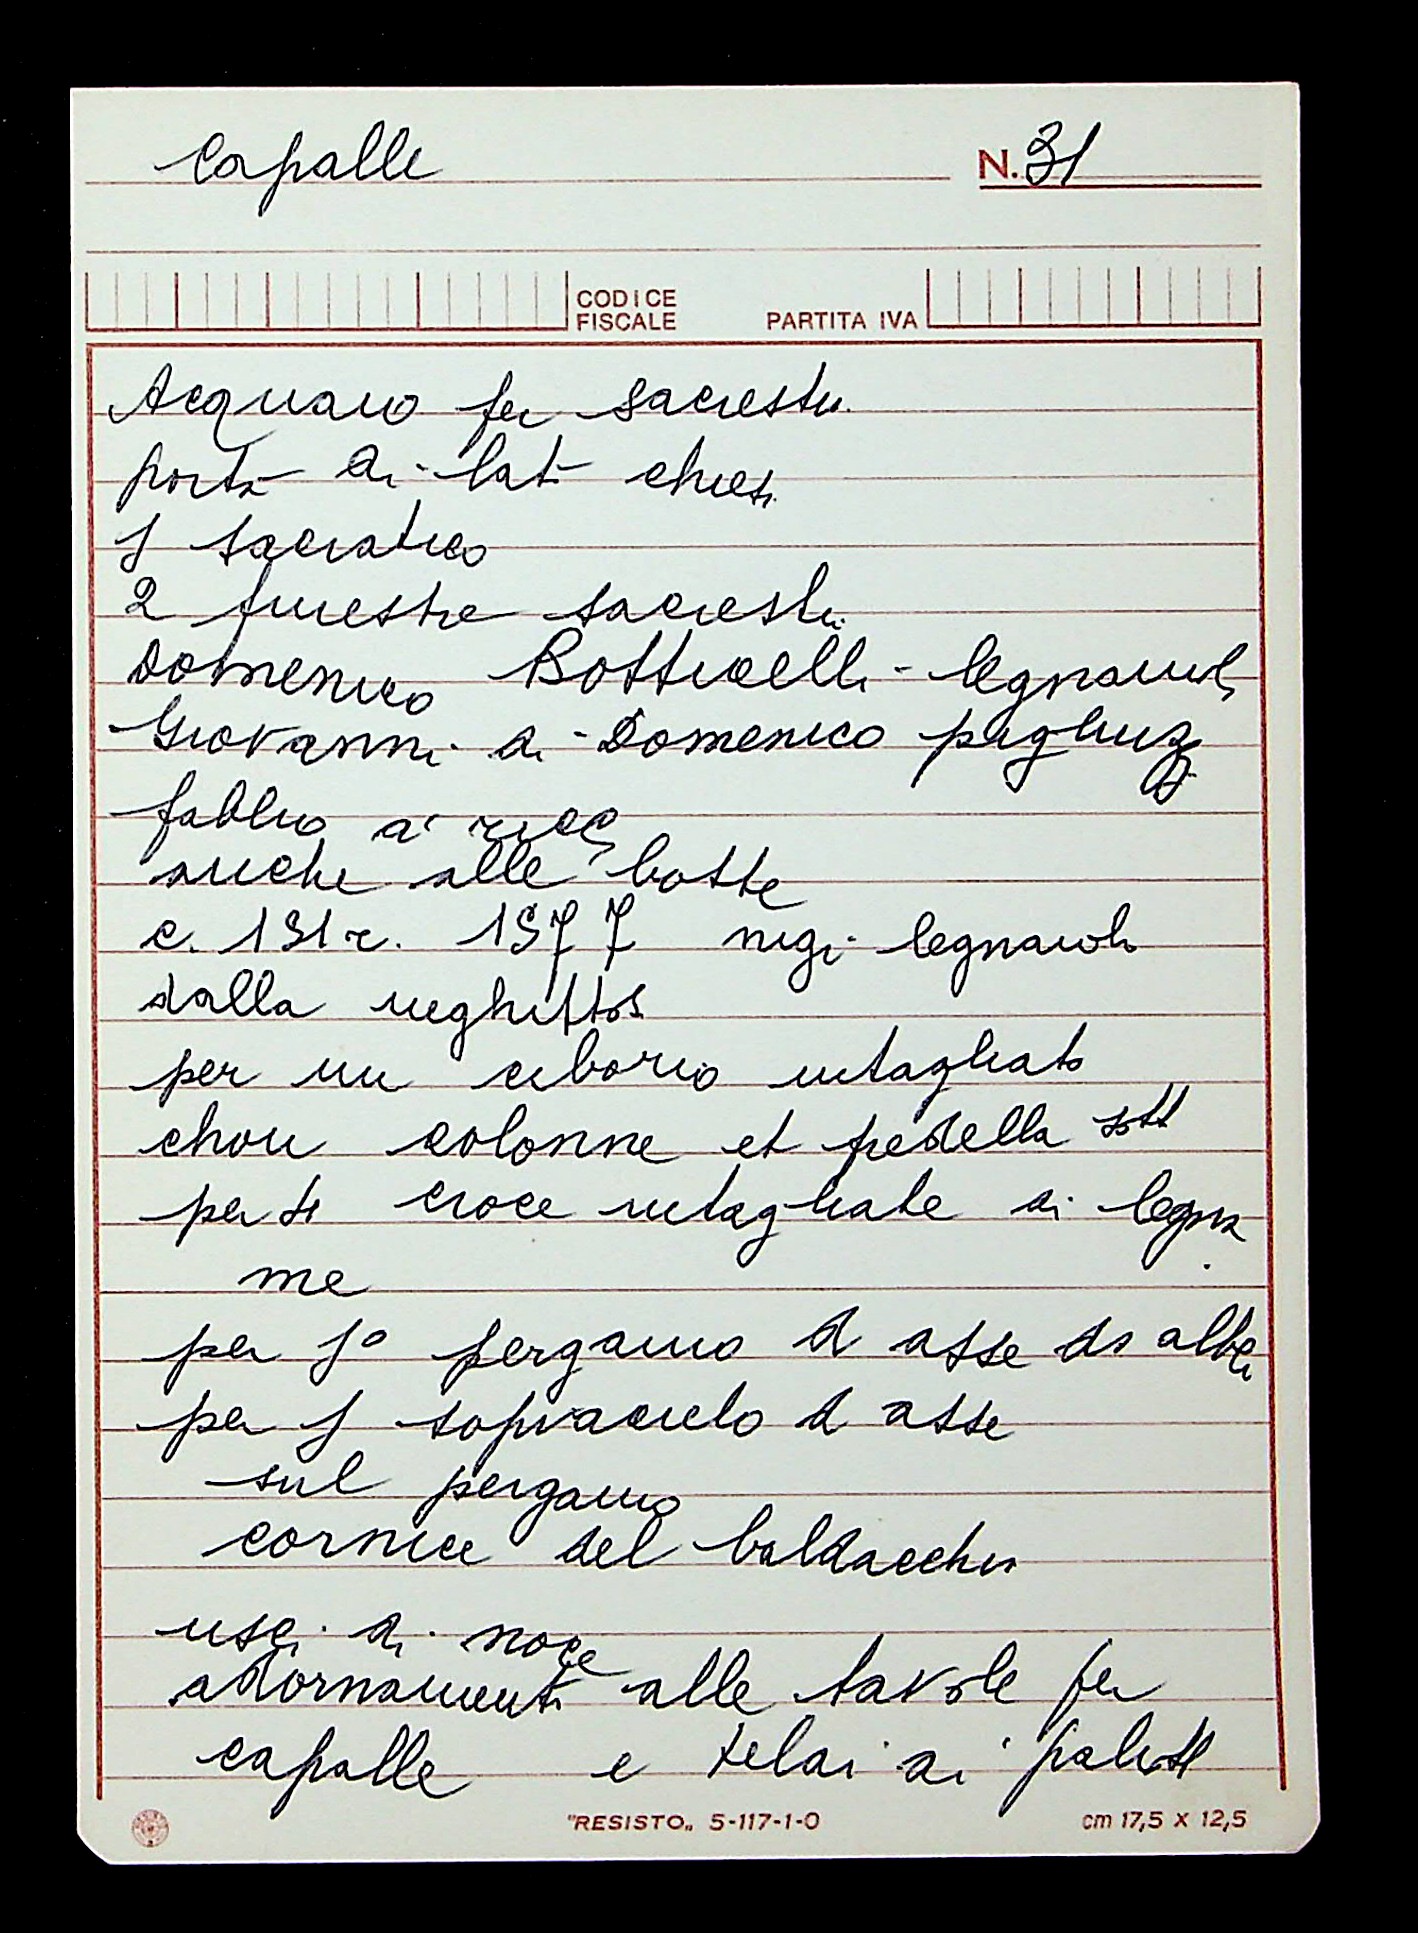 Capalle N. 31
CODICE
FISCALE PARTITA IVA
Acquaio per sacrestia
porta di lat chiesa
1 sacratico
2 finestre sacrestia
Domenico Botticelli - legnaiolo
Giovanni di Domenico
fabbro a
anche alle botte
c. 131r. 1577 legnaiolo
dalla
per un ciborio intagliato
chon colonne et predella sott
per 4 croce intagliate di legna
me
per 1º pergamo d asse di
per 1 sopracielo d asse
sul pergamo
cornice del baldacchin
usci di noce
adornamenti alle tavole per
capalle e telai ai paliotti
"RESISTO„ 5-117-1-0 cm 17,5 x 12,5